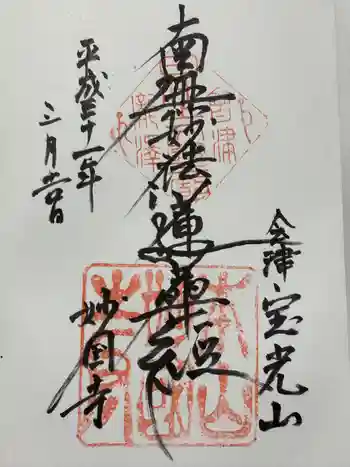 会津宝光山
南無妙法蓮華経
妙国寺
平成三十一年
三月吉日